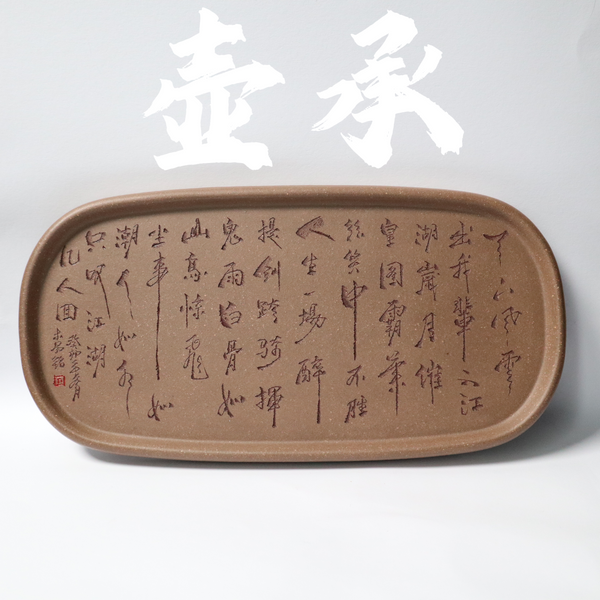 壶承
天下风雲
出我辈一入江
湖岁月催
皇图霸業
谈笑中不胜
人生一場醉
提剑跨骑揮
鬼雨白骨如
山鳥惊飛
尘事如
潮人如水
只叹江湖
几人回
癸卯年